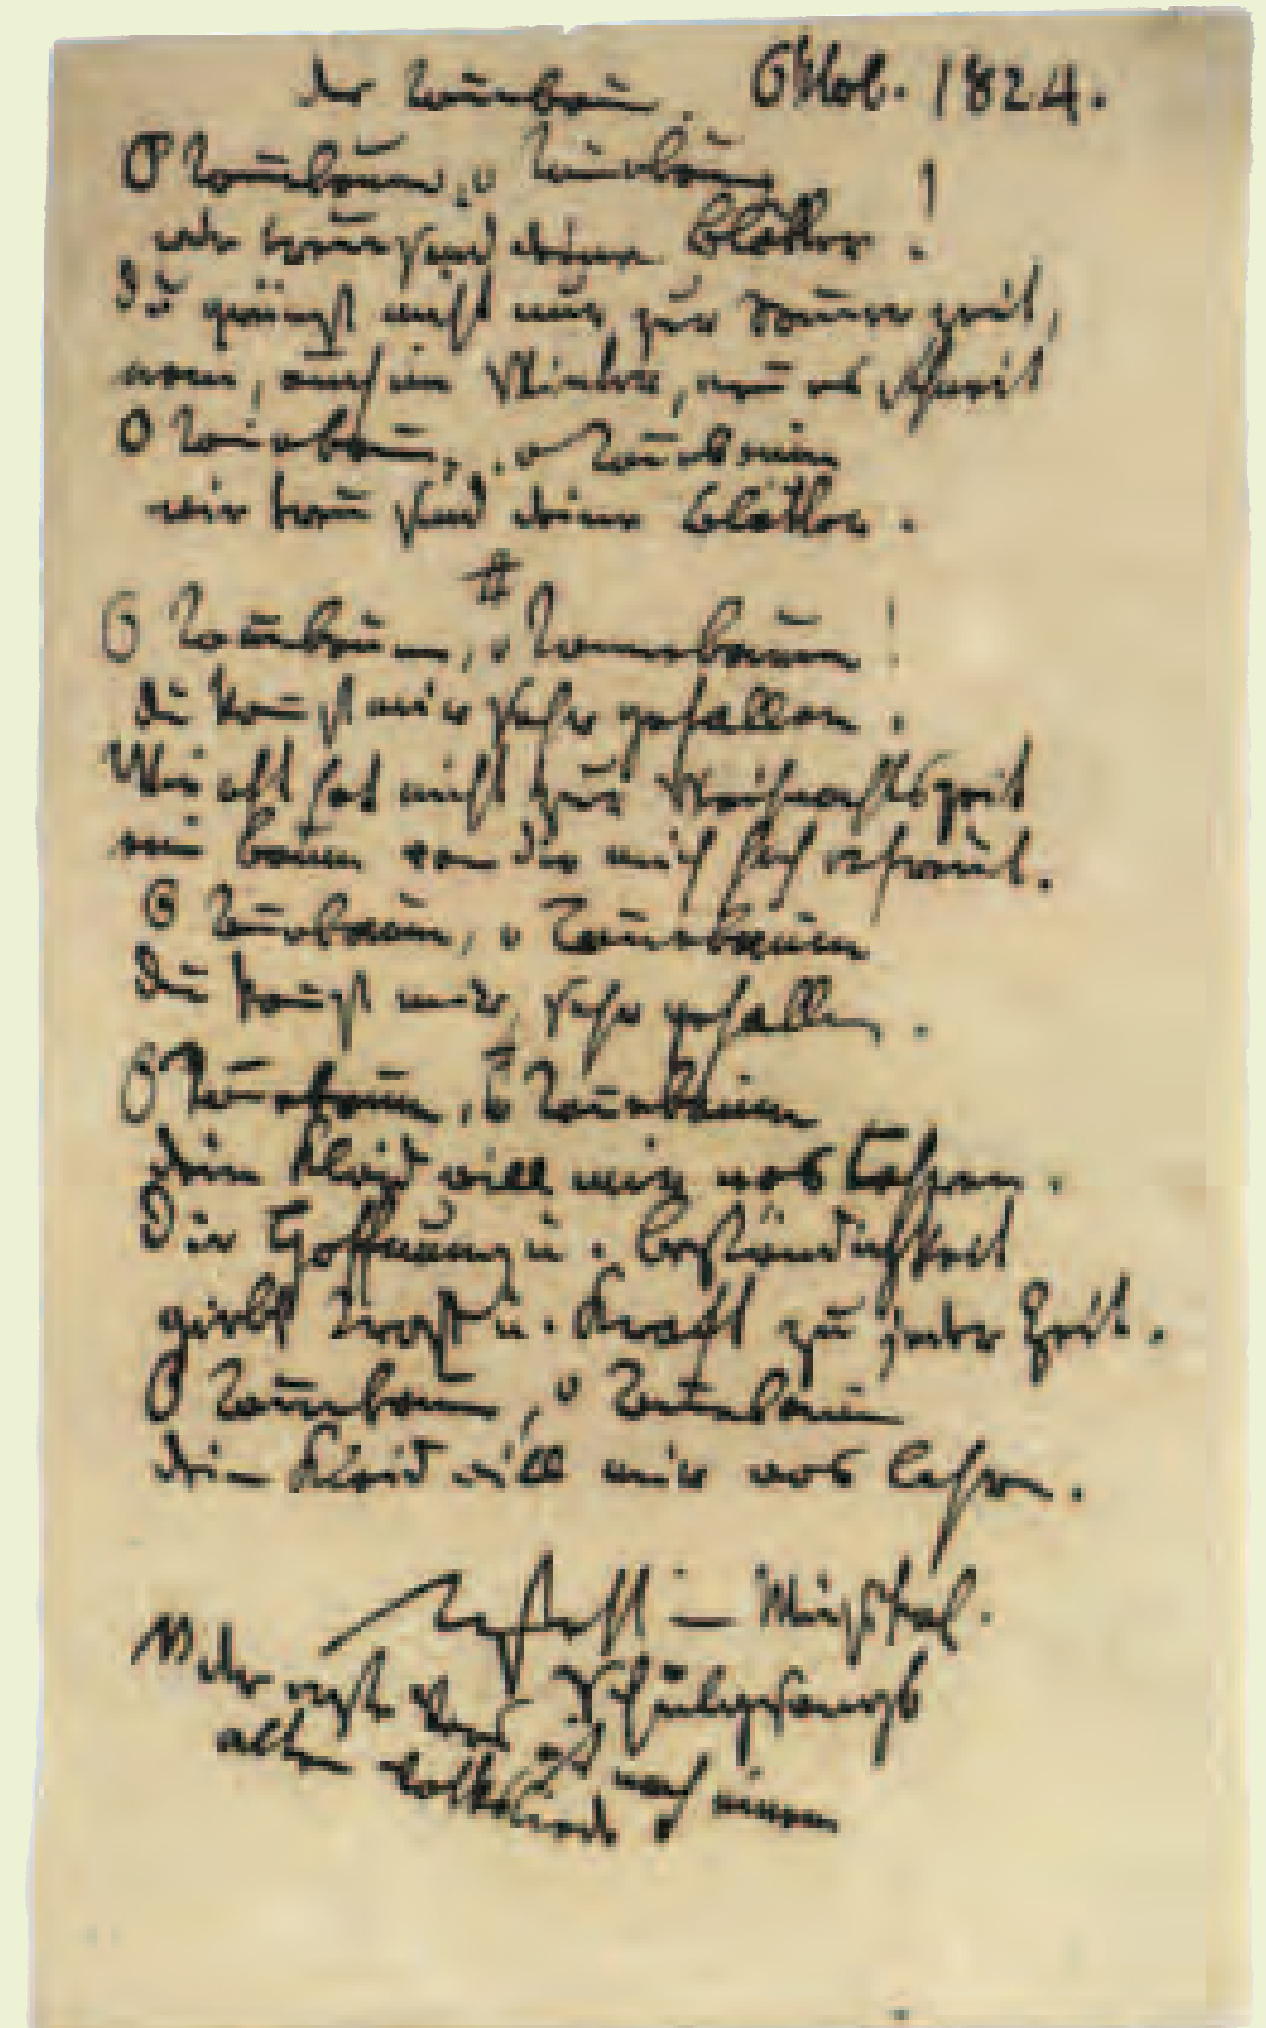 Der Tannbaum. Oktob. 1824.
O Tannbaum, o Tannbaum
wie treu sind deine Blätter!
Du grünst nicht nur zur Sommerzeit,
nein, auch im Winter, wenn es schneit
O Tannbaum, o Tannbaum
wie treu sind deine Blätter.
O Tannbaum, o Tannbaum!
Du kannst mir sehr gefallen.
Wie oft hat nicht zur Weihnachtszeit
ein Baum von dir mich hoch erfreut.
O Tannbaum, o Tannbaum
Du kannst mir sehr gefallen.
O Tannbaum, o Tannbaum
dein Kleid will mir was lehren.
Die Hoffnung u. Beständigkeit
giebt Trost u. Kraft zu jeder Zeit.
O Tannbaum, o Tannbaum
dein Kleid will mir was lehren.
der erste Vers
ist nach einem
alten Volksliede